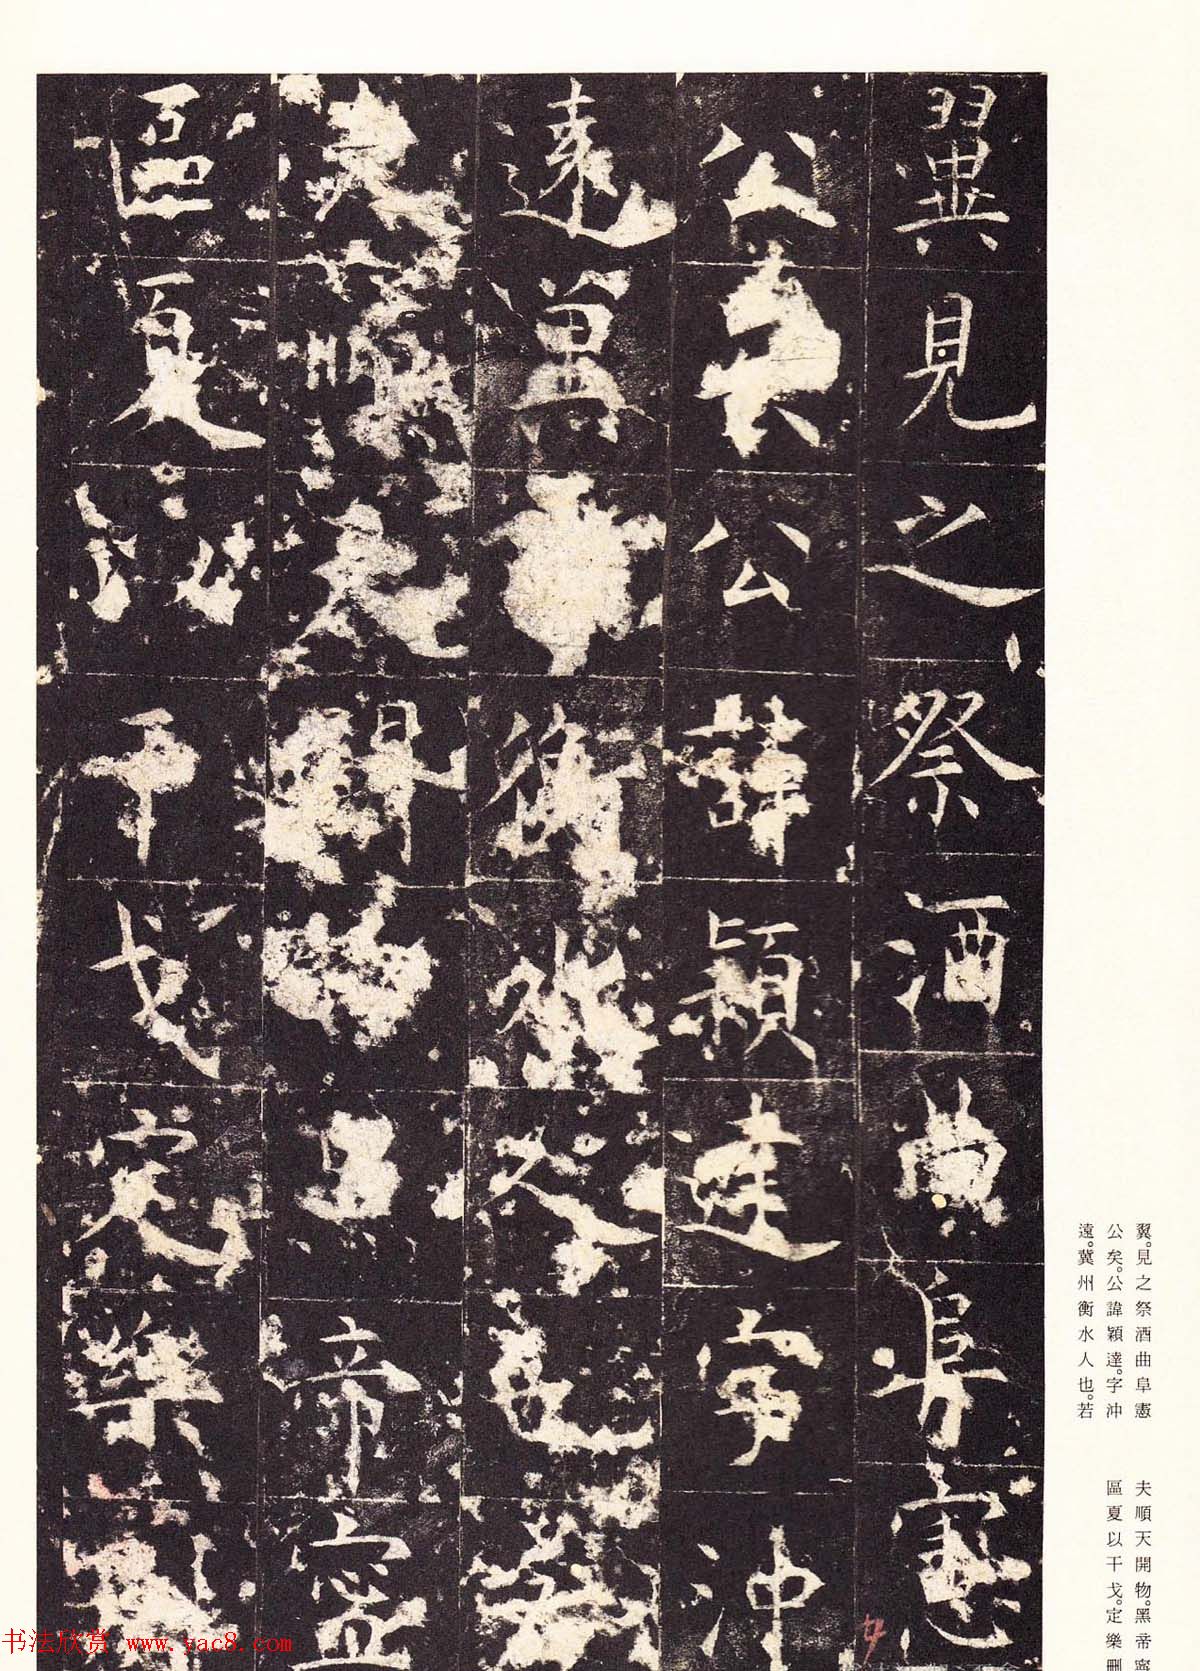 翼見之祭酒曲阜憲
公矣公諱穎達字沖
遠冀州衡水人也若
夫順天開物黑帝寧
區夏以干戈定樂刪
翼。見之祭酒曲阜憲
公矣。公諱穎達。字沖
遠。冀州衡水人也。若
夫順天開物。黑帝寧
區夏以干戈。定樂刪
书法欣赏 www.yac8.com